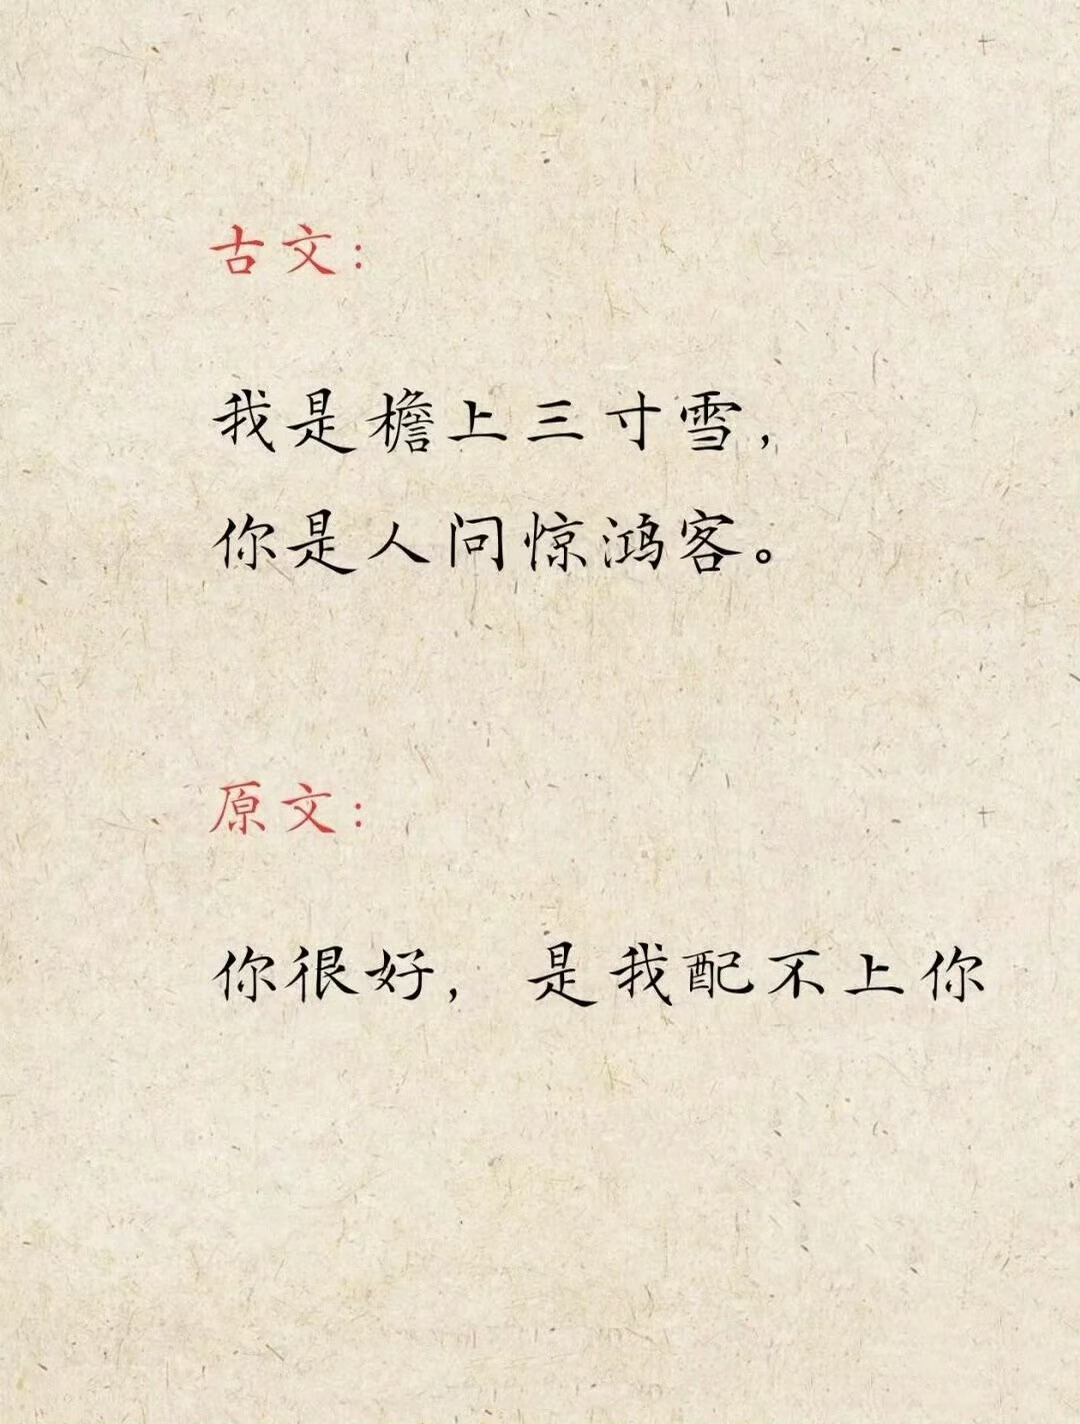 古文:
我是檐上三寸雪,
你是人间惊鸿客。
原文:
你很好, 是我配不上你